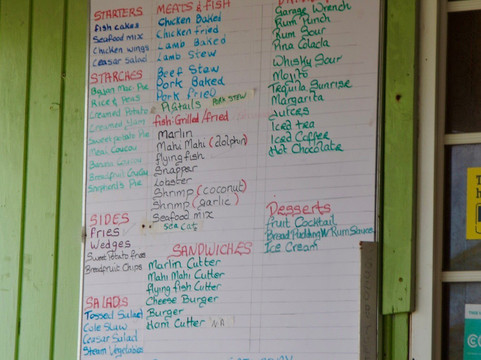 STARTERS
fish cakes
Seafood mix
Chicken wings
Ceasar Salad
STARCHES
Rice & Peas
Creamed Potato
Creamed Yam
Sweet potato Pie
Breadfruit Coucou
Shepherd's Pie
SIDES
Fries
Wedges
Sweet Potato Fries
Breadfruit Chips
SALADS
Tossed Salad
Cole Slaw
Ceasar Salad
Steam Vegetables
MEATS & FISH
Chicken Baked
Chicken fried
Lamb Baked
Lamb Stew
Beef Stew
Pork Baked
Pork fried
Pigtails PORK STEW
fish-Grilled/fried
Marlin
Mahi Mahi (dolphin)
flying fish
Snapper
Lobster
Shrimp (coconut)
Shrimp (garlic)
Seafood mix
Sea Cat
SANDWICHES
Marlin Cutter
Mahi Mahi Cutter
flying fish Cutter
Cheese Burger
Burger
Ham Cutter
Garage Wrench
Rum Punch
Rum Sour
Pina Colada
Whisky Sour
Mojito
Tequila Sunrise
Margarita
Juices
Iced tea
Iced Coffee
Hot Chocolate
Desserts
fruit Cocktail
Bread Pudding W/ Rum Sauce
Ice Cream